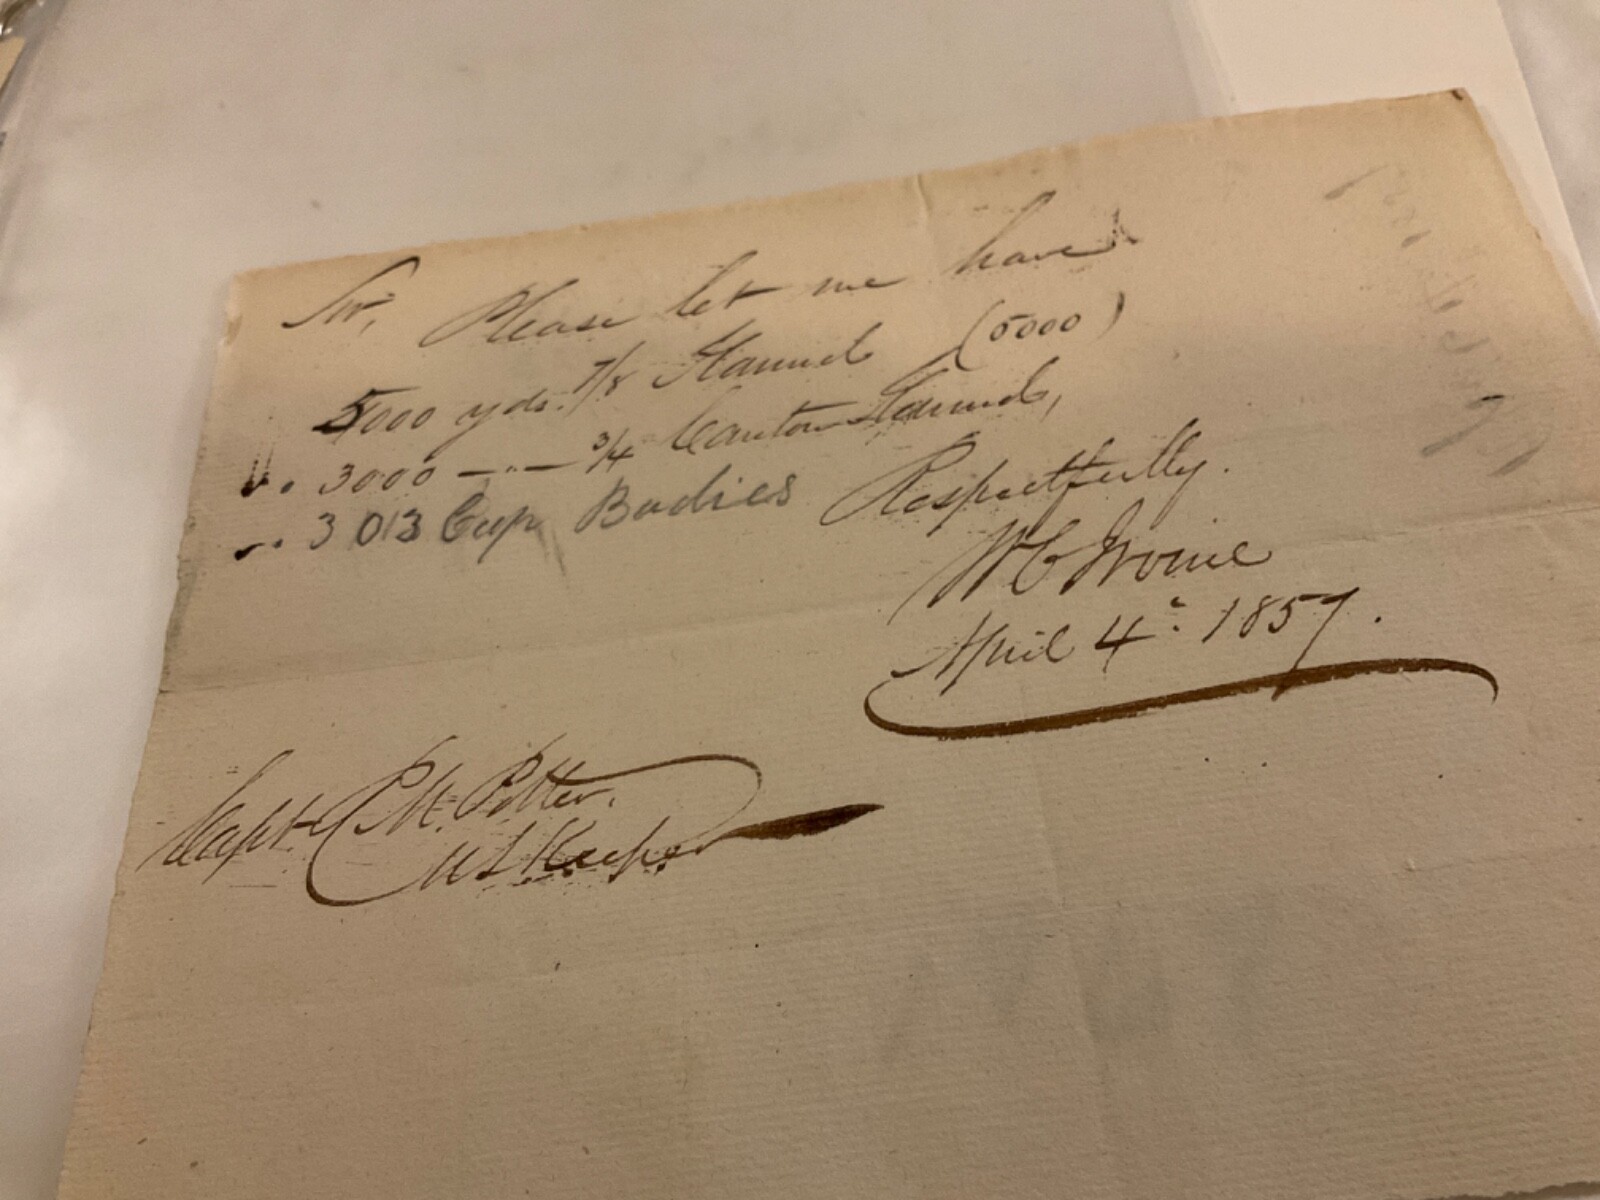 Sir, Please let me have
5000 yds. 7/8 Flannel (5000)
3000 — " — 3/4 Canton Flannel,
3013 Cap Bodies
Respectfully.
April 4". 1857.
Capt. Potter.